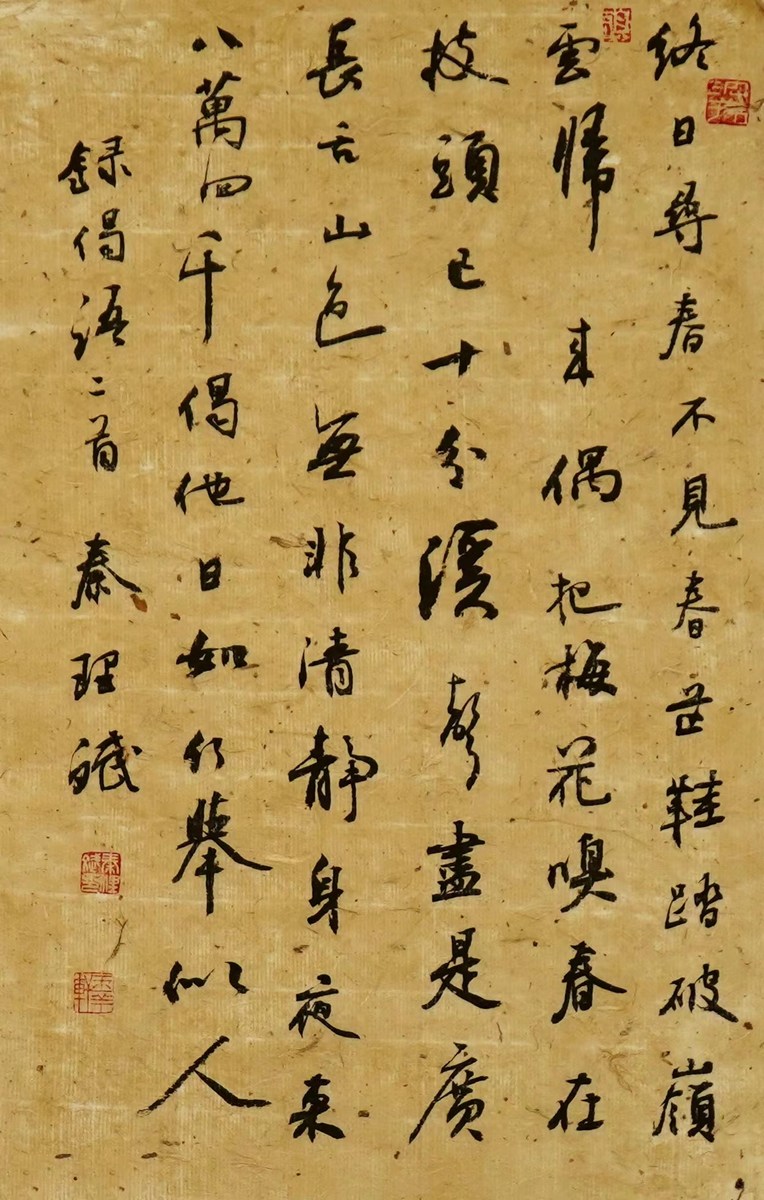 終日尋春不見春芒鞋踏破嶺
雲歸來偶把梅花嗅春在
枝頭已十分溪聲盡是廣
長舌山色無非清靜身夜來
八萬四千偈他日如何舉似人
錄偈語二首 秦理斌